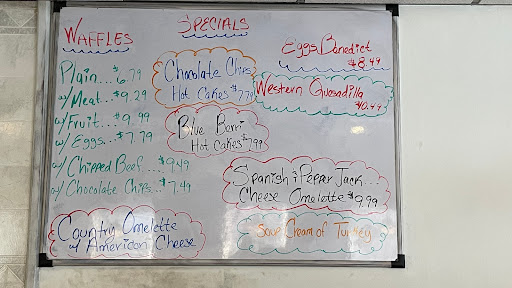 WAFFLES
Plain... $6.79
w/ Meat... $9.29
w/ Fruit... $9.99
w/ Eggs... $7.79
w/ Chipped Beef... $9.49
w/ Chocolate Chips... $7.49
Country Omelette
w/ American Cheese
SPECIALS
Chocolate Chips
Hot Cakes $7.79
Blue Berri
Hot Cakes $7.99
Eggs Benedict
$8.49
Western Quesadilla
$10.49
Spanish & Pepper Jack...
Cheese Omelotte $9.99
Soup Cream of Turkey